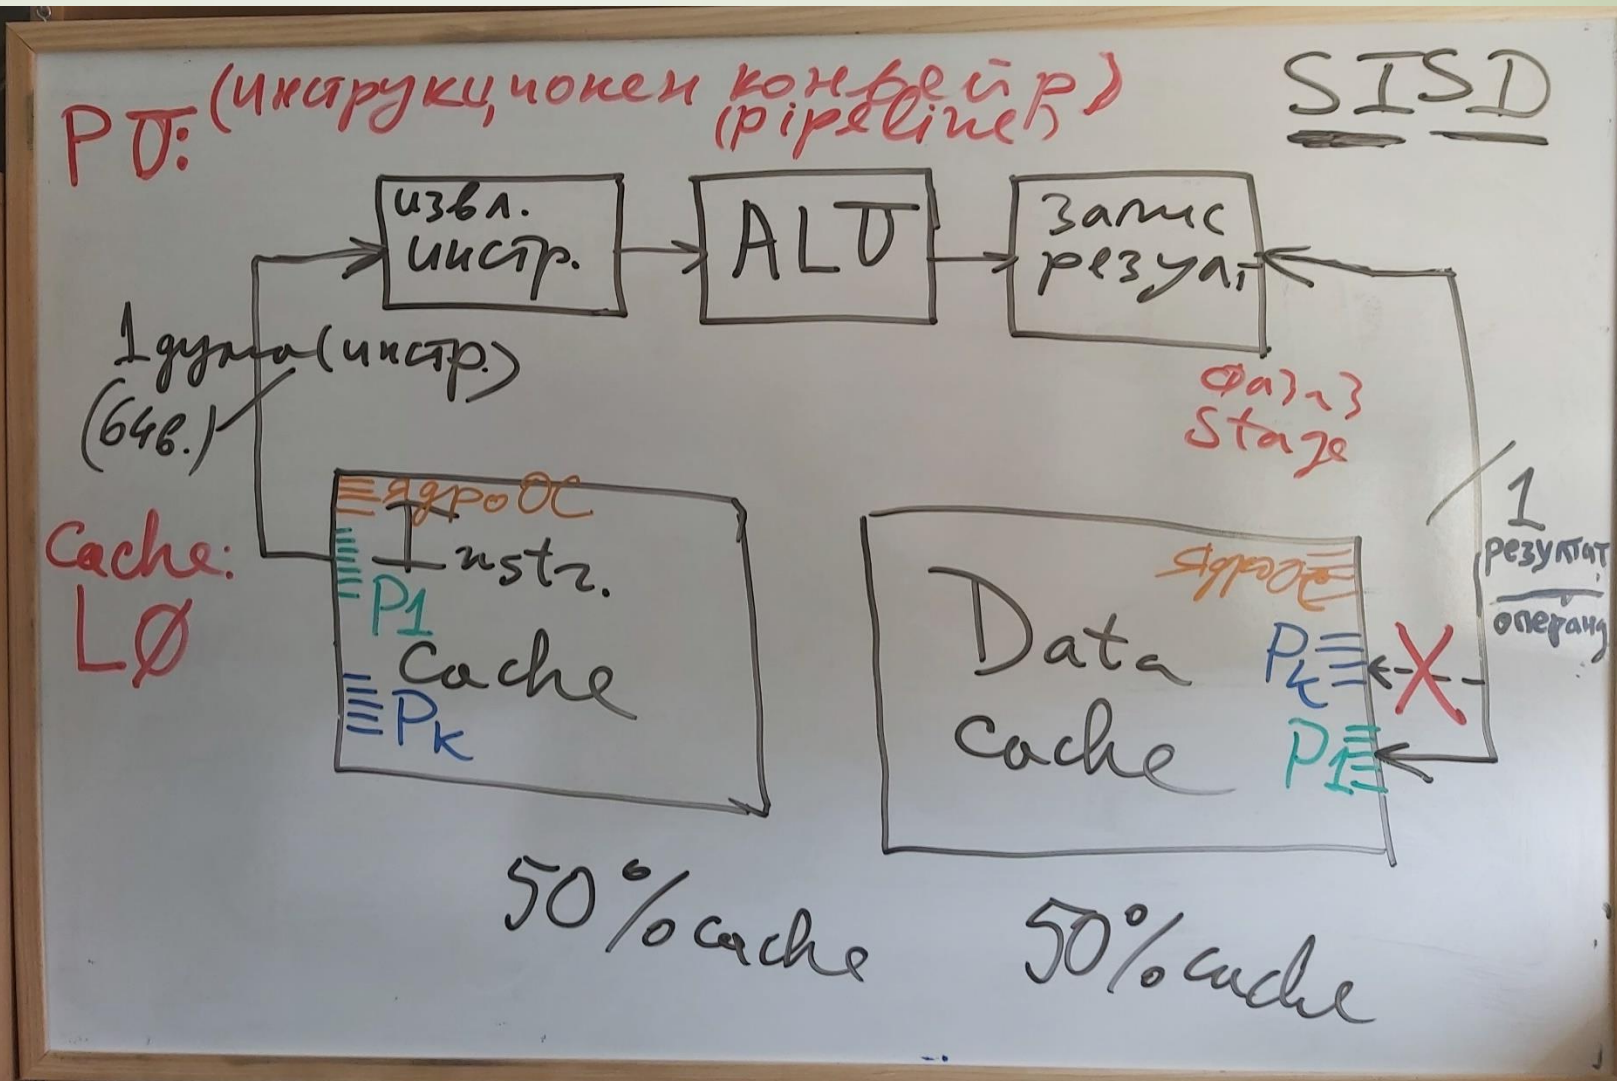 PU: (инструкционен конвейр)
(pipeline)
SISD
извл.
инстр.
ALU
запис
резулт
1 дума (инстр.)
(64в.)
Фаза
Stage
Cache:
LØ
ядро ОС
Instr.
P1
Cache
Pk
ядро ОС
Data
Cache
Pk
P1
X
1
резултат
операнд
50% cache
50% cache